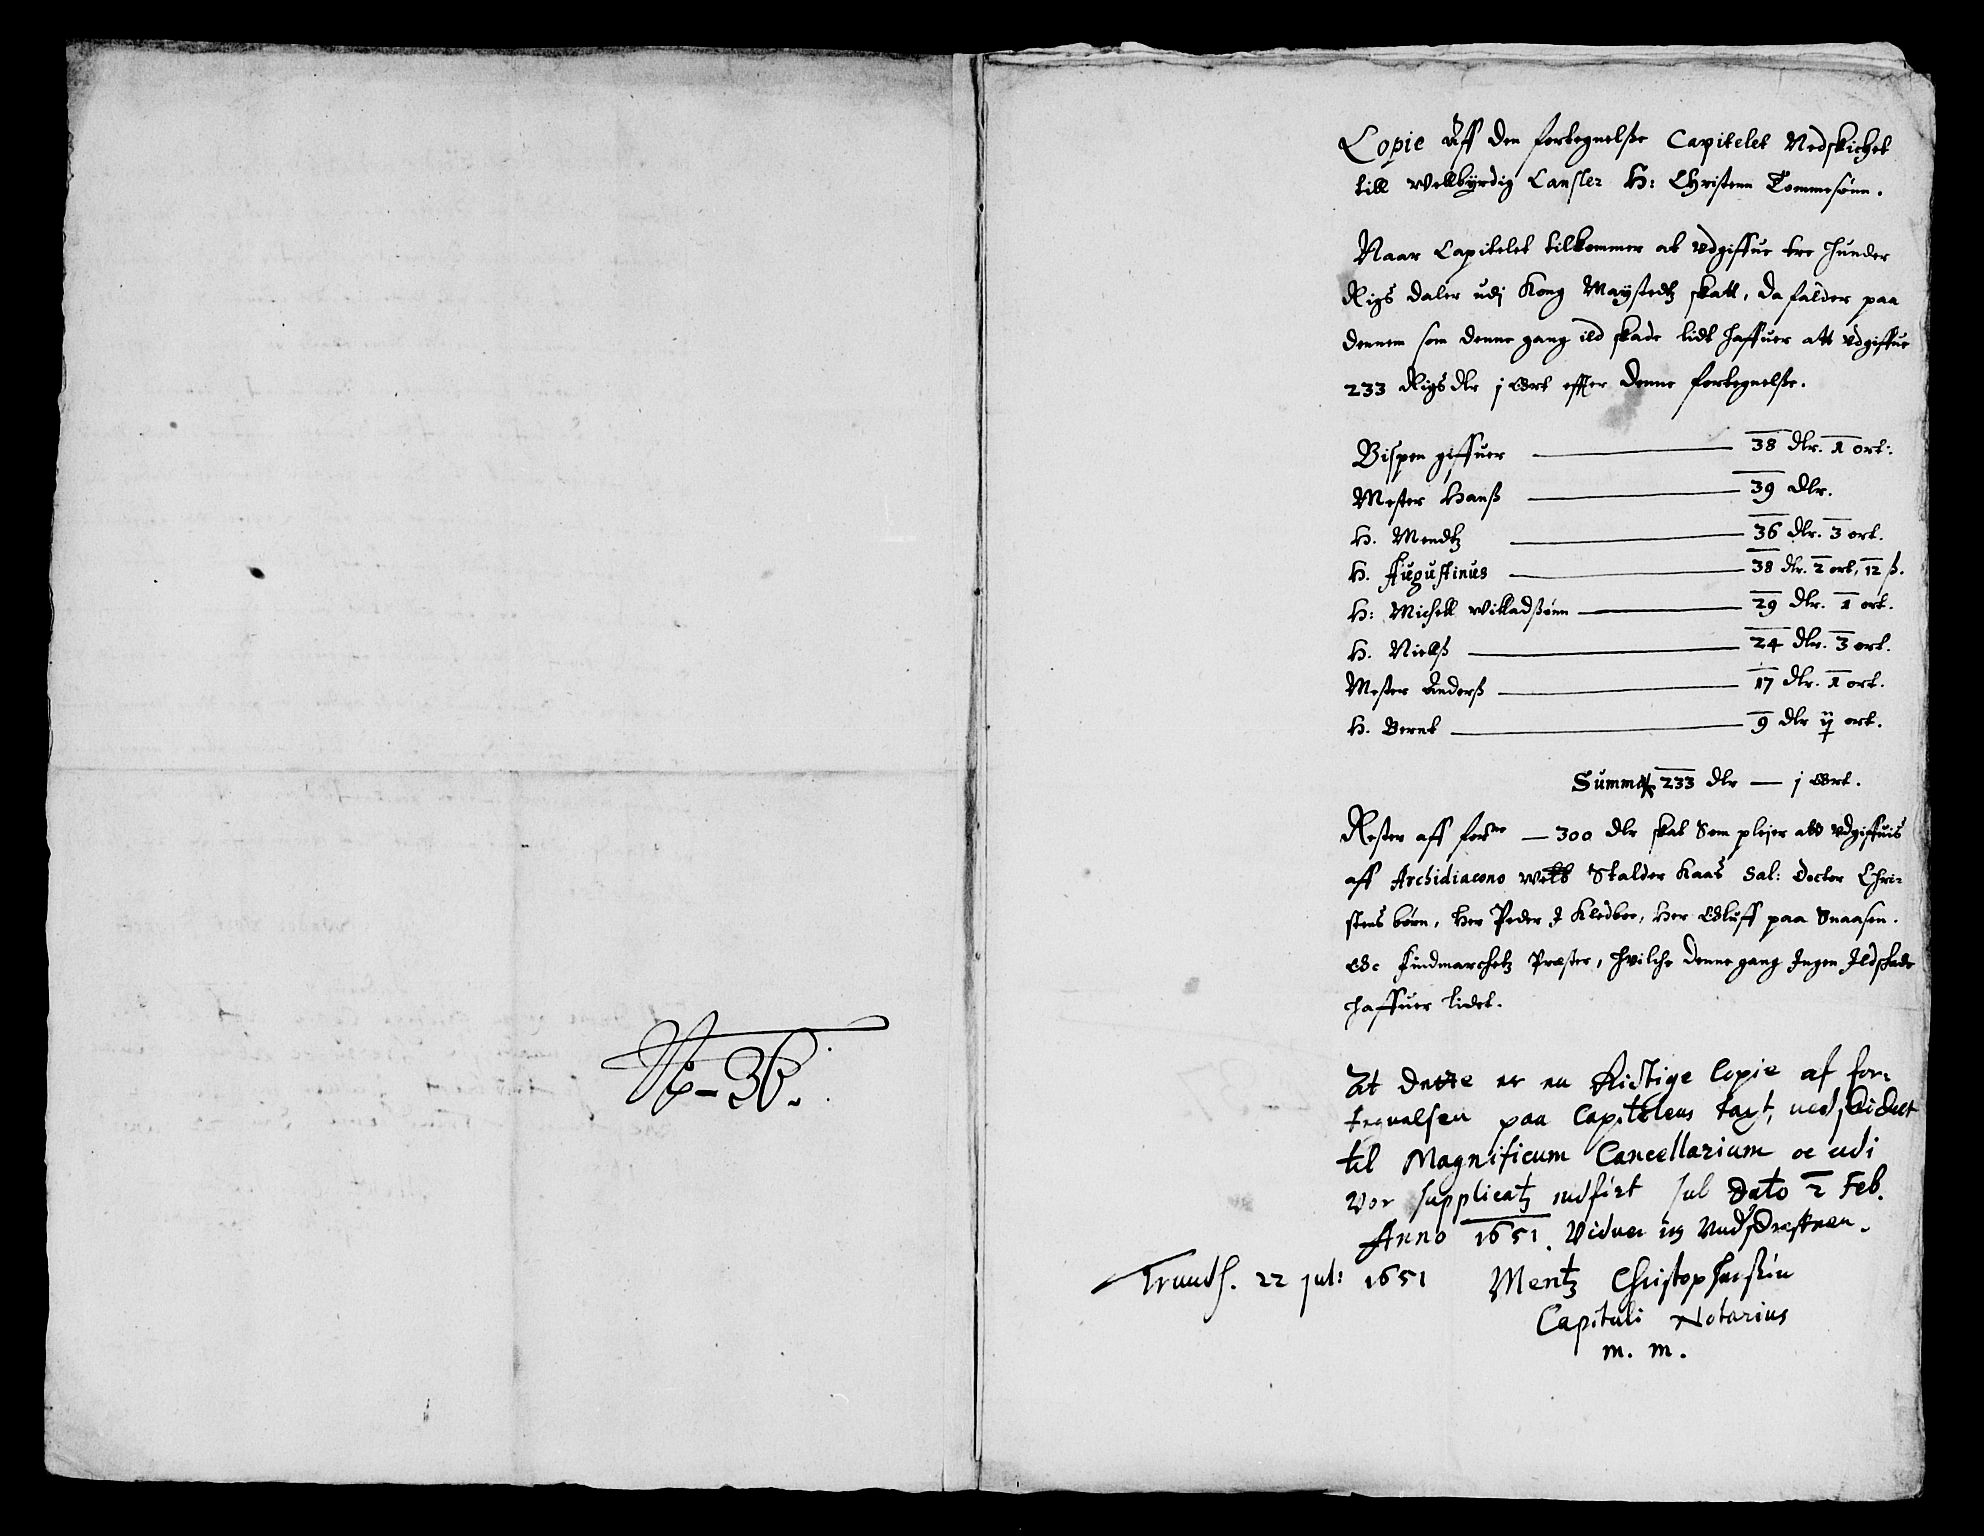 N<sup>o</sup> - 36.
Copie Aff den fortegnelße Capitelet Nedskichet
till Welbyrdig Cansler H: Christenn Tommesønn.
Naar Capitelet tilkommer at udgiffue tre hunder
Rigs daler udj Kong Maÿstedtz skatt, da falder paa
dennem som denne gang ild skade lidt haffuer att udgiffue
233 Rigs dlr j Ort effter denne fortegnelße.
Bispen giffuer 38 dlr. 1 ort:
Mester Hanß 39 dlr.
H. Mendtz 36 dlr. 3 ort.
H. Augustinus 38 dlr. 2 ort, 12 ß.
H: Michell Willadßønn 29 dlr. 1 ort.
H. Nielß 24 dlr. 3 ort.
Mester Anderß 17 dlr. 1 ort.
H. Bernt 9 dlr ij ort.
Summa 233 dlr — j Ort.
Rester aff for<sup>ne</sup> — 300 dlr skat Som plejer att udgiffuis
aff Archidiacono Welb Stalder Kaas Sal: Doctor Chri-
stens børn, Her Peder J Kledboe, Her Oluff paa Snaasen.
Oc Findmarchetz Præster, hvilche denne gang Ingen Ildskade
haffuer lidet.
At dette er en Rictige Copie af for-
tegnelsen paa Capitelens taxt, nedskicket
til Magnificum Cancellarium oc udi
vor supplicatz indført sub dato 2 Feb.
Anno 1651. Vidner ieg Underskrefuen.
Trundh. 22 jul: 1651 Mentz Christophersøn
Capituli Notarius
m. m.